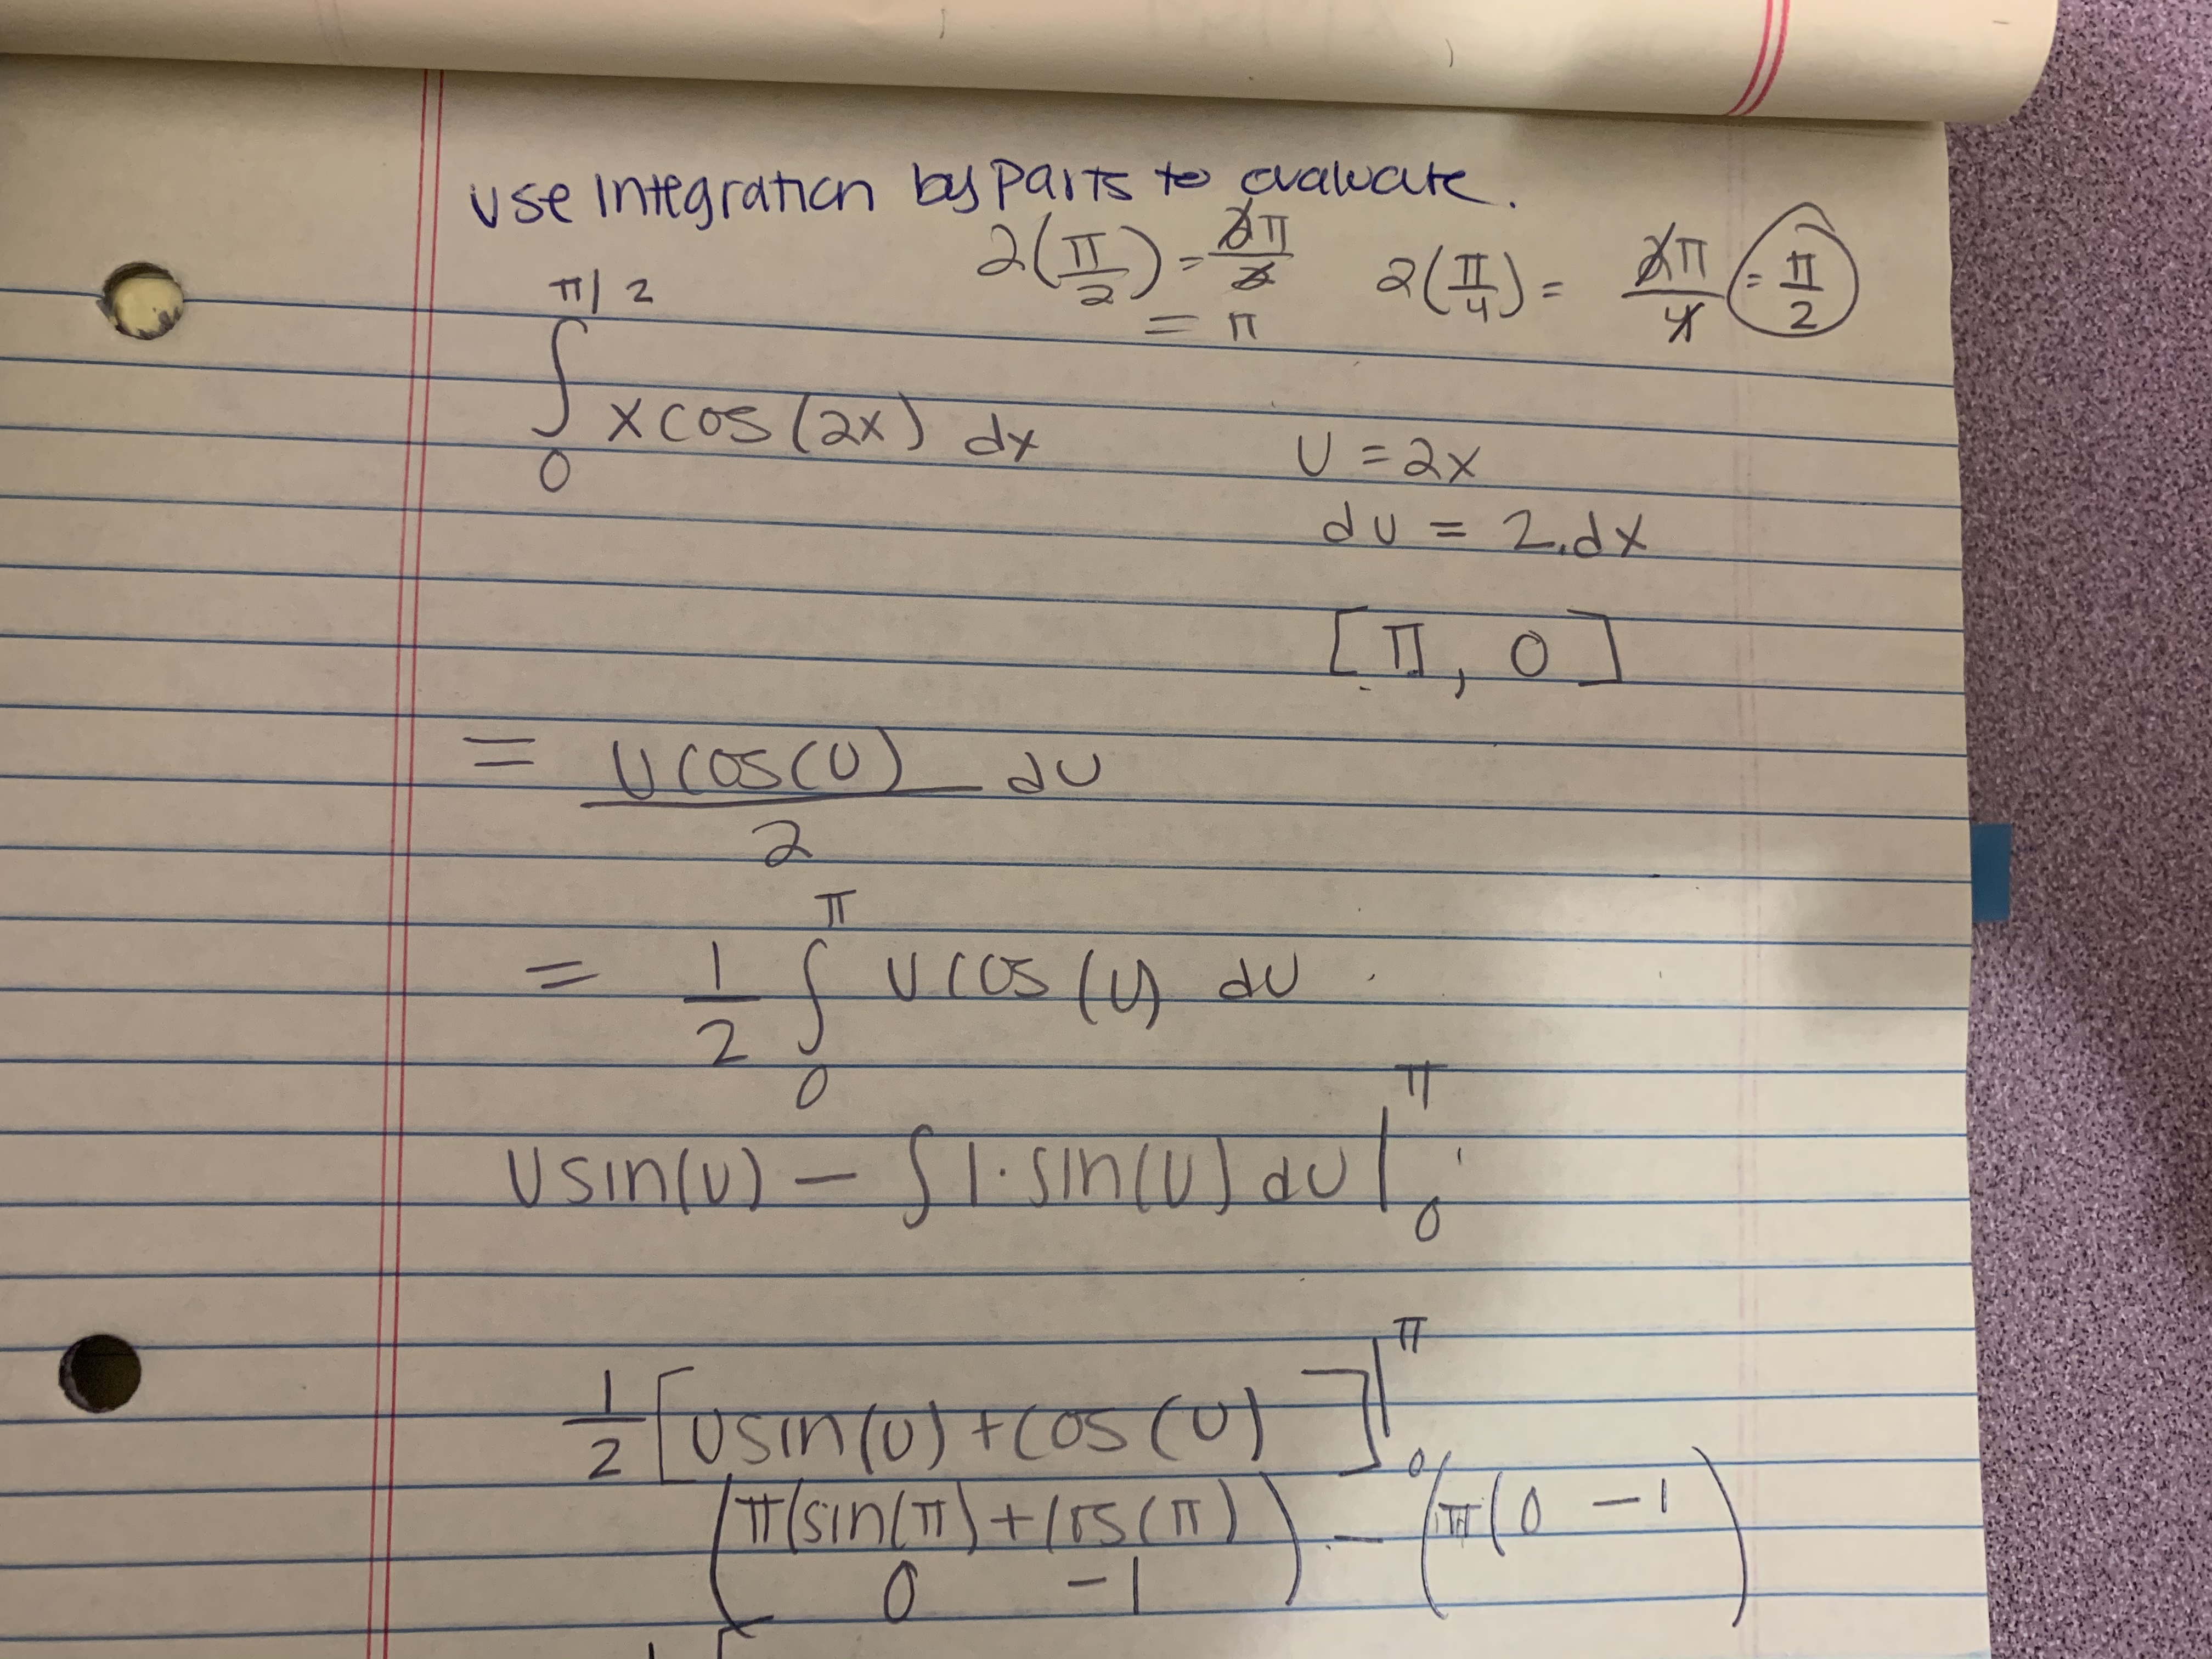 Use Integration by Parts to evaluate.
2(π/2) = 2π/2 = π
2(π/4) = 2π/4 = π/2
∫_0^{π/2} x cos(2x) dx
U = 2x
du = 2.dx
[π, 0]
= U cos(U)/2 du
= 1/2 ∫_0^π U cos(U) dU
U sin(U) - ∫ 1·sin(U) dU |_0^π
1/2 [U sin(U) + cos(U)]|_0^π
(π(sin(π) + cos(π)) - (π(0 - 1)
0 -1